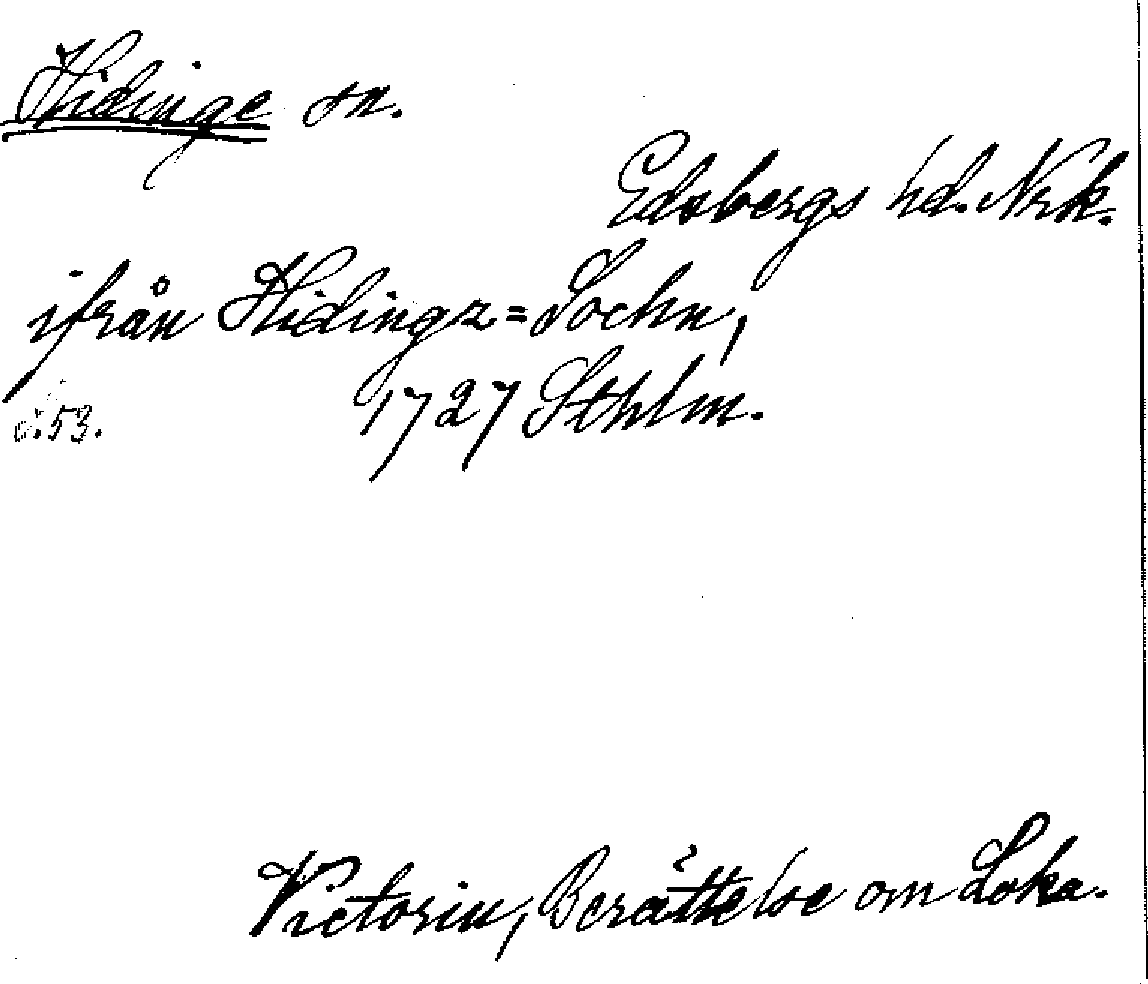 Hidinge sn.
Edsbergs hd. Nrk.
ifrån Hidingz=Sochn,
1727 Sthlm.
s. 53.
Victorin, Berättelse om Loka.